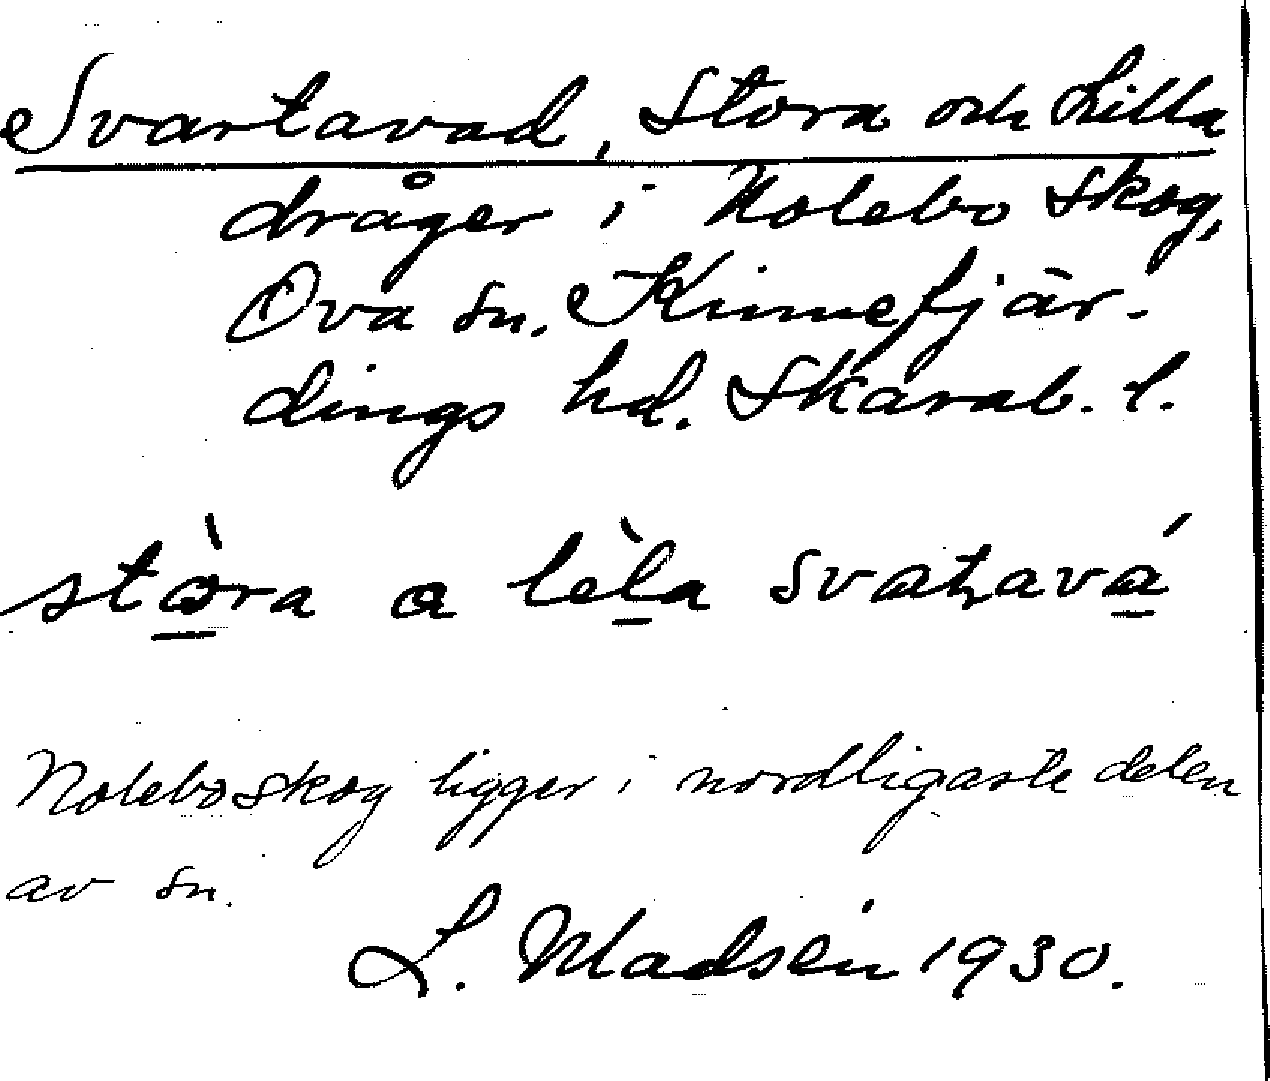 Svartavad, Stora och Lilla
dråger i Nolebo skog,
Ova sn. Kinnefjär-
dings hd. Skarab. l.
stòra a lèla svaʈavá
Noleboskog ligger i nordligaste delen
av sn.
L. Madsén 1930.